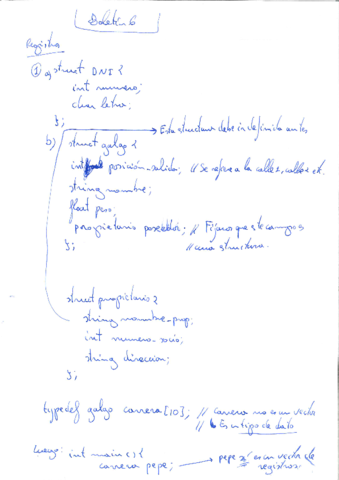 Boletín 6
Registros
① a) struct DNI {
int numero;
char letra;
};
→ Esta structura debe ir definida antes
b) struct galgo {
int posición_salida; // Se refiere a la calle 1, calle 2 etc.
string nombre;
float peso;
propietario poseedor; // Fijaros que este campo es
}; // una structura.
struct propietario {
string nombre_prop;
int numero_socio;
string direccion;
};
typedef galgo carrera[10]; // carrera no es un vector
// ↳ Es un tipo de dato
Luego: int main() {
carrera pepe; → pepe sí es un vector de
registros